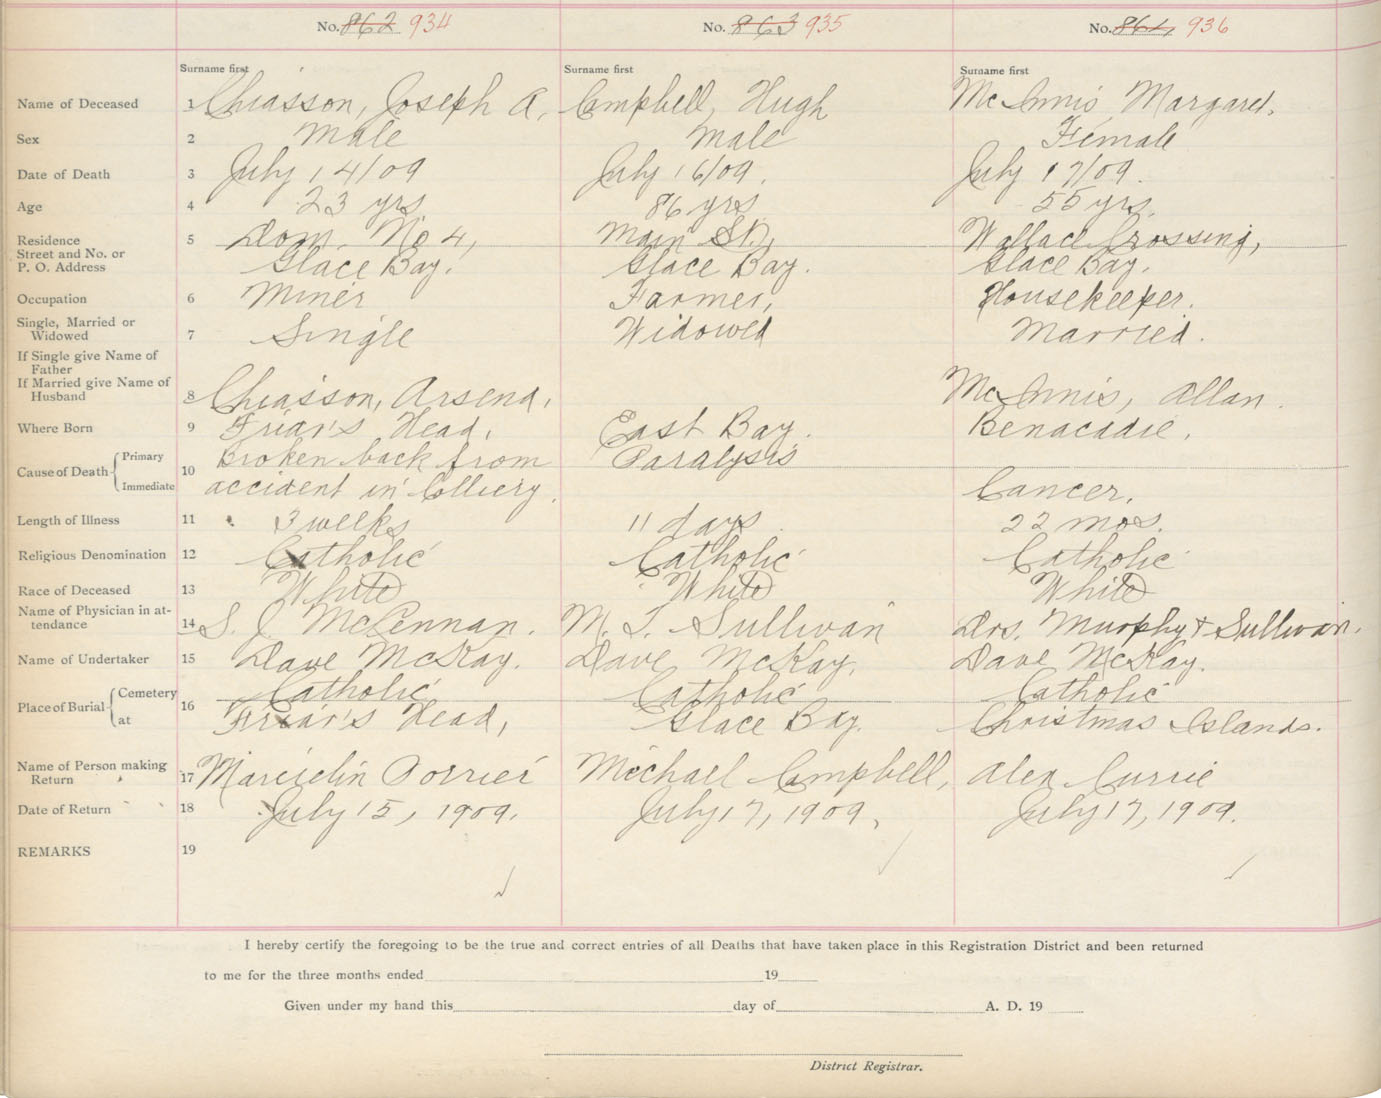 No. 862 934 No. 863 935 No. 864 936
Surname first Surname first Surname first
Name of Deceased 1 Chiasson, Joseph A. Campbell, Hugh McInnis, Margaret.
Sex 2 Male Male Female
Date of Death 3 July 14/09 July 16/09. July 17/09.
Age 4 23 yrs 86 yrs 55 yrs.
Residence 5 Dom. No 4, Main St., Wallace Crossing,
Street and No. or
P. O. Address Glace Bay. Glace Bay. Glace Bay.
Occupation 6 Miner Farmer, Housekeeper.
Single, Married or
Widowed 7 Single Widowed Married.
If Single give Name of
Father
If Married give Name of
Husband 8 Chiasson, Arsena, McInnis, Allan.
Where Born 9 Friar's Head, East Bay. Benacadie.
Cause of Death Primary Broken back from Paralysis
10
Immediate accident in Colliery. Cancer.
Length of Illness 11 3 weeks 11 days 22 mos.
Religious Denomination 12 Catholic Catholic Catholic
Race of Deceased 13 White White White
Name of Physician in at-
tendance 14 S. J. McLennan. M. T. Sullivan Drs. Murphy & Sullivan.
Name of Undertaker 15 Dave McKay. Dave McKay. Dave McKay.
Place of Burial Cemetery Catholic Catholic Catholic
16
at Friar's Head, Glace Bay. Christmas Islands.
Name of Person making
Return 17 Marcelin Porrier Michael Campbell, Alex Currie
Date of Return 18 July 15, 1909. July 17, 1909, July 17, 1909.
REMARKS 19
I hereby certify the foregoing to be the true and correct entries of all Deaths that have taken place in this Registration District and been returned
to me for the three months ended 19
Given under my hand this day of A. D. 19
District Registrar.